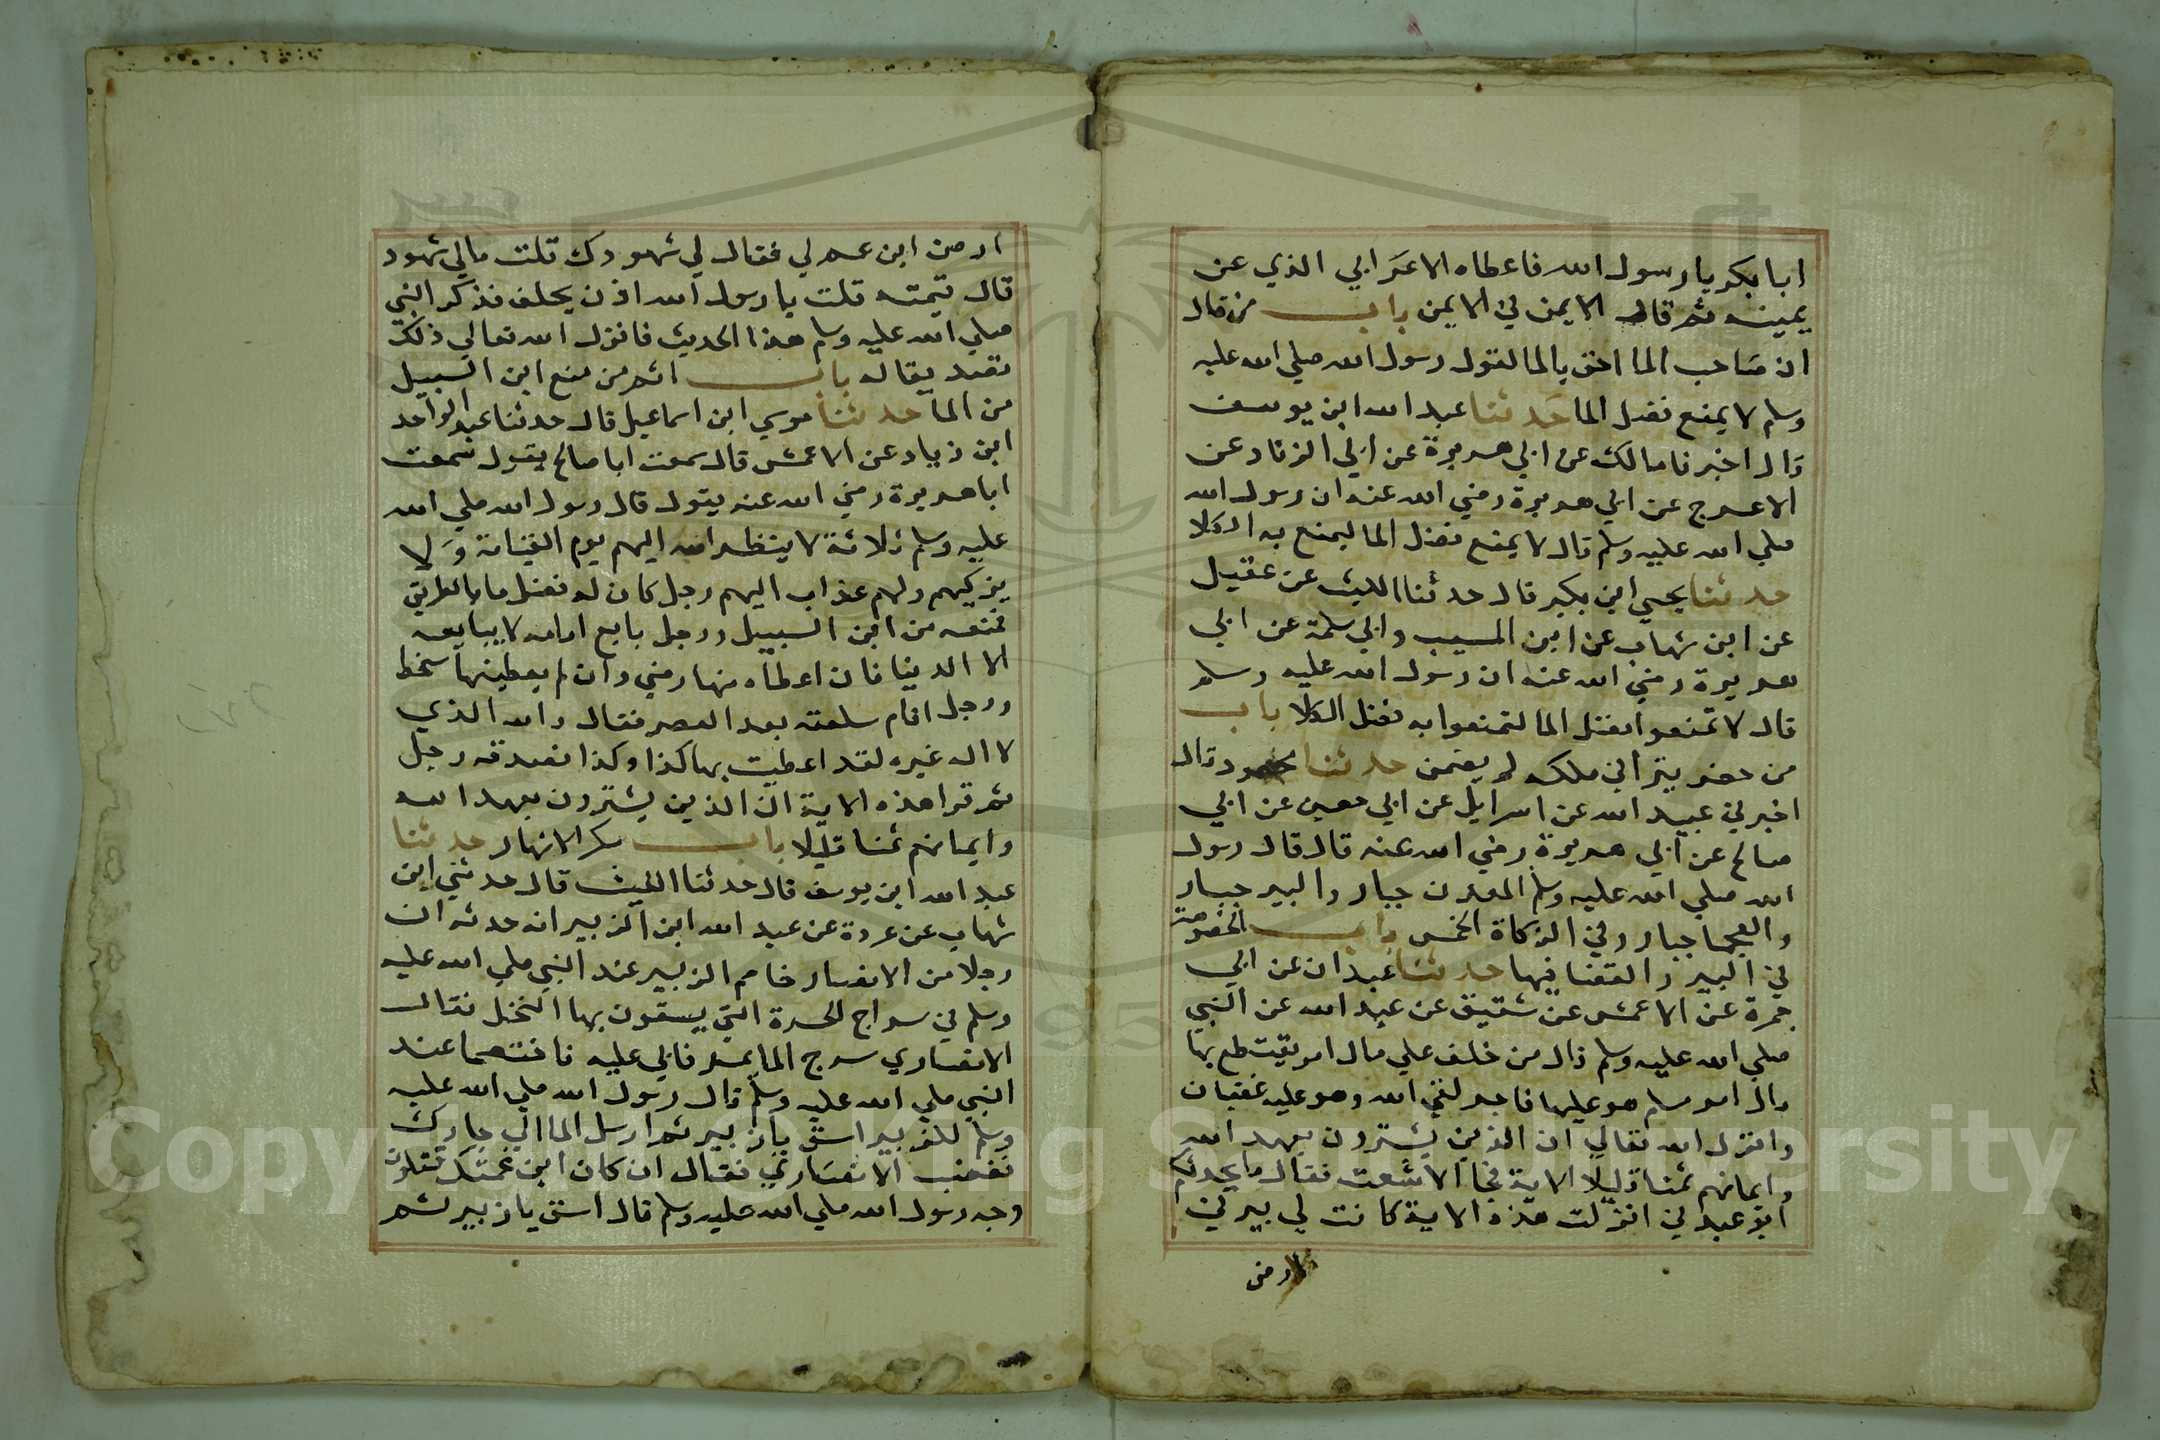 ابا بكر يا رسول الله فاعطاه الاعرابي الذي عن
يمينه ثم قال الايمن في الايمن باب من قال
ان صاحب الما احق بالما لقول رسول الله صلي الله عليه
وسلم لا يمنع فضل الما حدثنا عبد الله ابن يوسف
قال اخبرنا مالك عن ابي هريرة عن ابي الزناد عن
الاعرج عن ابي هريرة رضي الله عنه ان رسول الله
صلي الله عليه وسلم قال لا يمنع فضل الما ليمنع به الكلا
حدثنا يحيي ابن بكير قال حدثنا الليث عن عقيل
عن ابن شهاب عن ابن المسيب وابي سلمة عن ابي
هريرة رضي الله عنه ان رسول الله عليه وسلم
قال لا تمنعوا فضل الما لتمنعوا به فضل الكلا باب
من حفر بيرا في ملكه لم يضمن حدثنا محمود قال
اخبرني عبيد الله عن اسرايل عن ابي حصين عن ابي
صالح عن ابي هريرة رضي الله عنه قال قال رسول
الله صلي الله عليه وسلم المعدن جبار والبير جبار
والعجما جبار وفي الزكاة الخمس باب الخصومة
في البير والقضا فيها حدثنا عبدان عن ابي
حمزة عن الاعمش عن شقيق عن عبد الله عن النبي
صلي الله عليه وسلم قال من خلف علي مال امر يقتطع بها
مال امر مسلم هو عليها فاجر لقي الله وهو عليه غضبان
وانزل الله تعالي ان الذين يشترون بعهد الله
وايمانهم ثمنا قليلا الاية فجا الاشعث فقال ما يحدثكم
ابو عبد في انزلت هذه الاية كانت لي بير في
ارض
ارض ابن عم لي فقال لي شهودك قلت مالي شهود
قال يمينه قلت يا رسول الله اذن يحلف فذكر النبي
صلي الله عليه وسلم هذا الحديث فانزل الله تعالي ذلك
تصديقا له باب اثم من منع ابن السبيل
من الما حدثنا موسي ابن اسماعيل قال حدثنا عبد الواحد
ابن زياد عن الاعمش قال سمعت ابا صالح يقول سمعت
ابا هريرة رضي الله عنه يقول قال رسول الله صلي الله
عليه وسلم ثلاثة لا ينظر الله اليهم يوم القيامة ولا
يزكيهم ولهم عذاب اليهم رجل كان له فضل ما بالطريق
فمنعه من ابن السبيل ورجل بايع امامه لا يبايعه
الا الدنيا فان اعطاه منها رضي وان لم يعطيها سخط
ورجل اقام سلعته بعد العصر فقال والله الذي
لا اله غيره لقد اعطيت بها كذا وكذا فصدقه رجل
ثم قرا هذه الاية ان الذين يشترون بعهد الله
وايمانهم ثمنا قليلا باب سكر الانهار حدثنا
عبد الله ابن يوسف قال حدثنا الليث قال حدثني ابن
شهاب عن عروة عن عبد الله ابن الزبير انه حدثه ان
رجلا من الانصار خاصم الزبير عند النبي صلي الله عليه
وسلم في سراج الحرة التي يسقون بها النخل فقال
الانصاري سرج الما عمر فابي عليه فاختصما عند
النبي صلي الله عليه وسلم قال رسول الله صلي الله عليه
وسلم للزبير اسق يا زبير ثم ارسل الما الي جارك
فغضب الانصاري فقال ان كان ابن عمتك فتلون
وجه رسول الله صلي الله عليه وسلم قال اسق يا زبير ثم